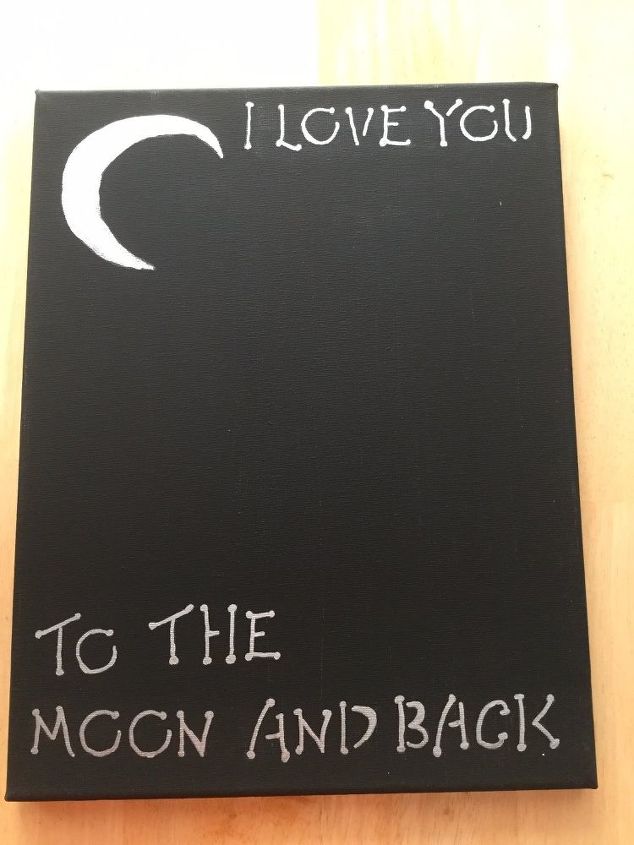 I LOVE YOU
TO THE
MOON AND BACK